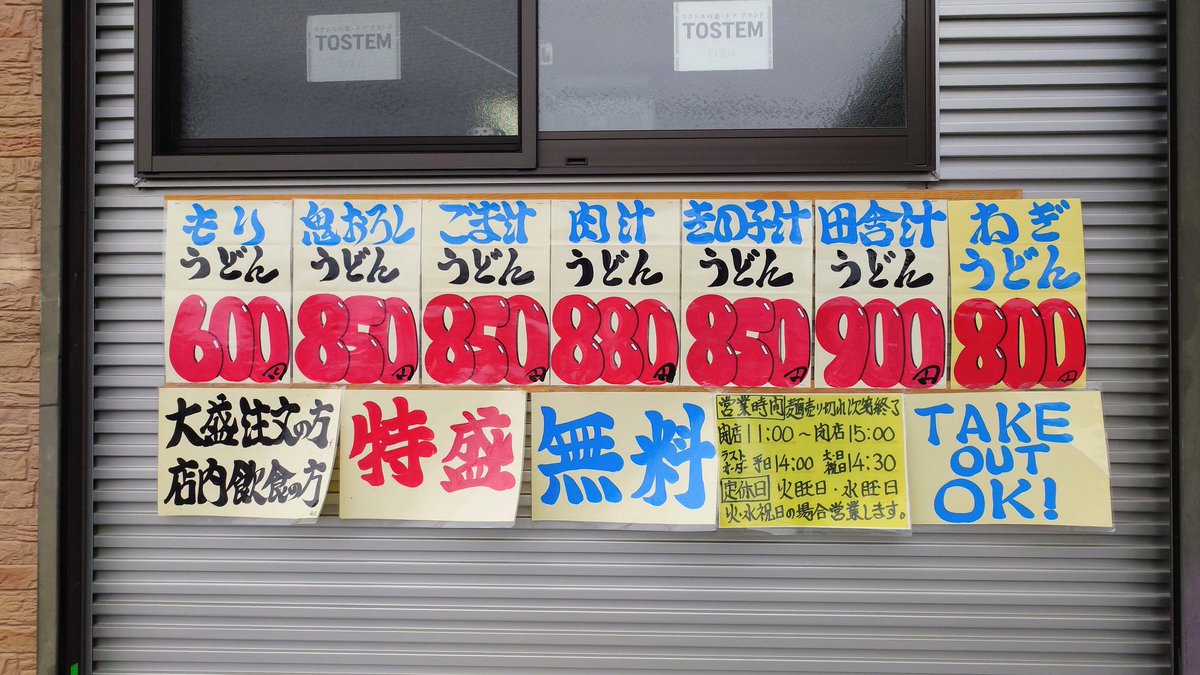 リクシルの窓・ドア ブランド
TOSTEM
リクシルの窓・ドア ブランド
TOSTEM
もり
うどん
600円
鬼おろし
うどん
850円
ごま汁
うどん
850円
肉汁
うどん
880円
きの子汁
うどん
850円
田舎汁
うどん
900円
ねぎ
うどん
800円
大盛注文の方
店内飲食の方
特盛
無料
営業時間麺売り切れ次第終了
開店11:00～閉店15:00
ラストオーダー 平日14:00 土・日祝日14:30
定休日 火曜日・水曜日
火・水祝日の場合営業します。
TAKE
OUT
OK!